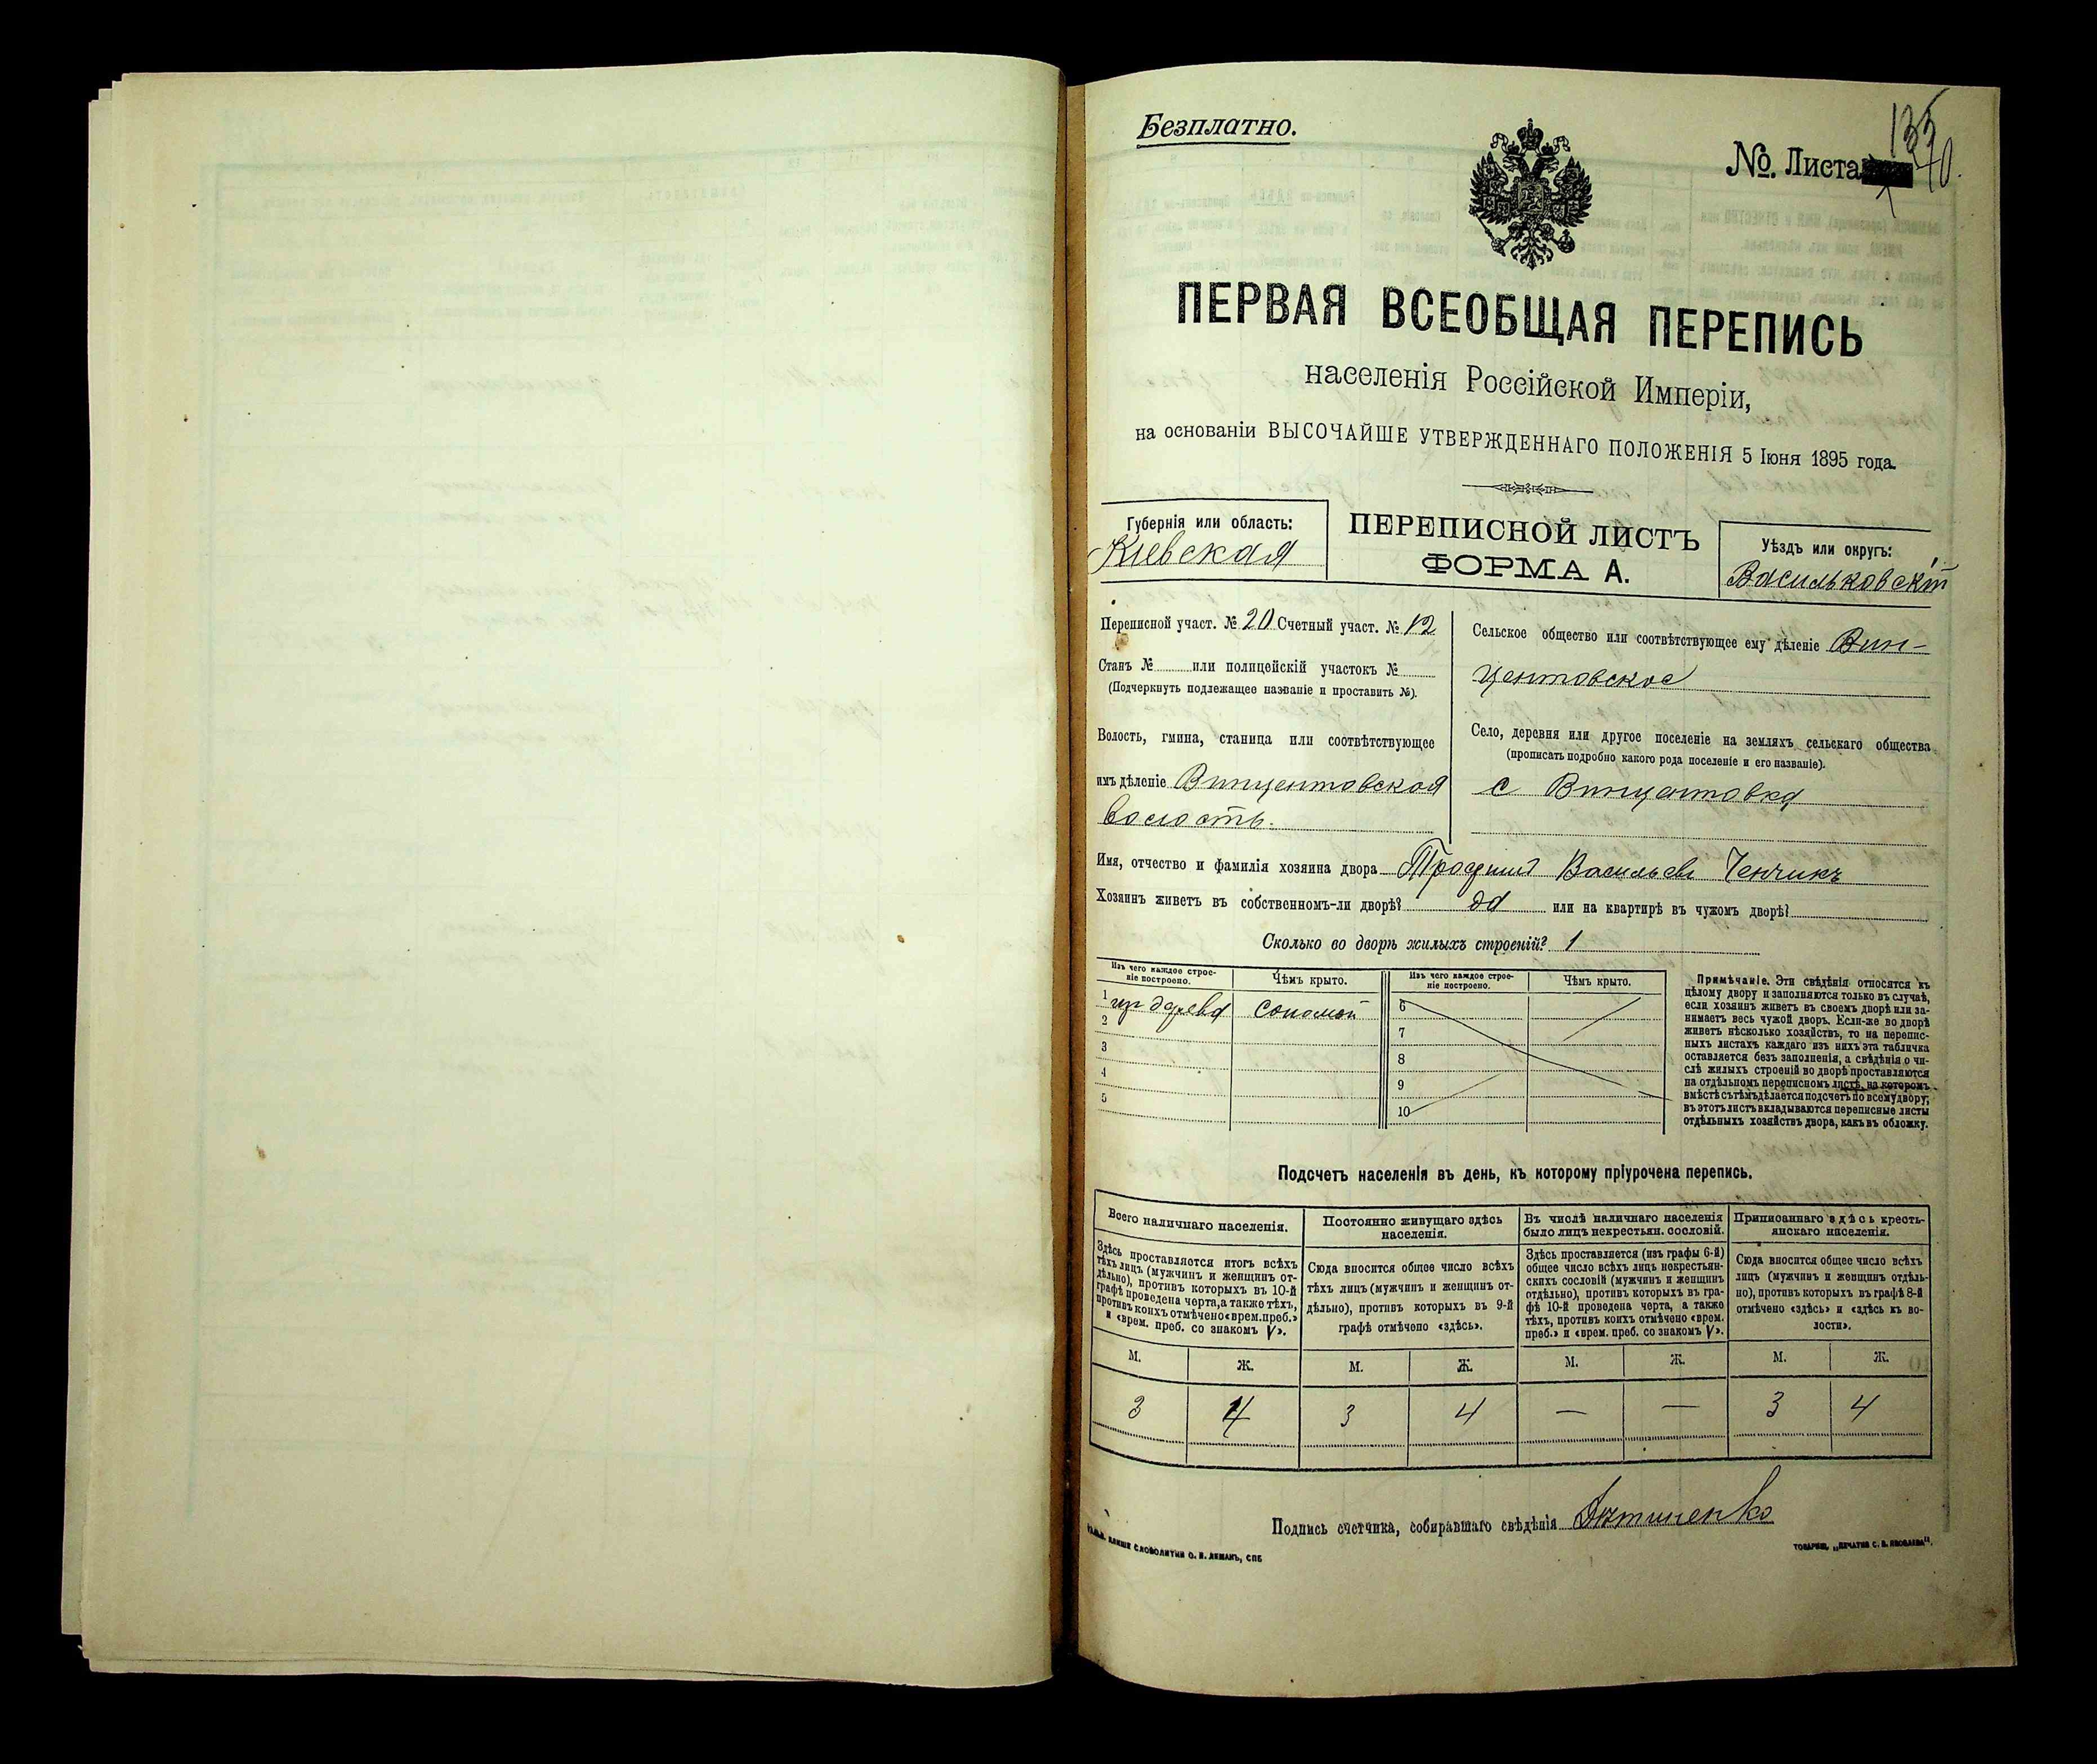 Безплатно.
№ Листа
135
40.
ПЕРВАЯ ВСЕОБЩАЯ ПЕРЕПИСЬ
населенія Россійской Имперіи,
на основаніи ВЫСОЧАЙШЕ УТВЕРЖДЕННАГО ПОЛОЖЕНІЯ 5 Іюня 1895 года.
Губернія или область:
Кіевская
ПЕРЕПИСНОЙ ЛИСТЪ
ФОРМА А.
Уѣздъ или округъ:
Васильковскій
Переписной участ. № 20 Счетный участ. № 12
Станъ № или полицейскій участокъ №
(Подчеркнуть подлежащее названіе и проставить №).
Волость, гмина, станица или соотвѣтствующее
имъ дѣленіе Винцентовская
волость.
Сельское общество или соотвѣтствующее ему дѣленіе Вин-
центовское
Село, деревня или другое поселеніе на земляхъ сельскаго общества
(прописать подробно какого рода поселеніе и его названіе).
с Винцентовка
Имя, отчество и фамилія хозяина двора Трофим Васильевъ Ченчикъ
Хозяинъ живетъ въ собственномъ-ли дворѣ? да или на квартирѣ въ чужомъ дворѣ?
Сколько во дворѣ жилыхъ строеній? 1
Изъ чего каждое строе-
ніе построено.
Чѣмъ крыто.
Изъ чего каждое строе-
ніе построено.
Чѣмъ крыто.
1 изъ дерева соломой 6
2 7
3 8
4 9
5 10
Примѣчаніе. Эти свѣдѣнія относятся къ
цѣлому двору и заполняются только въ случаѣ,
если хозяинъ живетъ въ своемъ дворѣ или за-
нимаетъ весь чужой дворъ. Если-же во дворѣ
живетъ нѣсколько хозяйствъ, то на перепис-
ныхъ листахъ каждаго изъ нихъ эта табличка
оставляется безъ заполненія, а свѣдѣнія о чи-
слѣ жилыхъ строеній во дворѣ проставляются
на отдѣльномъ переписномъ листѣ, на которомъ
вмѣстѣ съ тѣмъ дѣлается подсчетъ по всему двору;
въ этотъ листъ вкладываются переписные листы
отдѣльныхъ хозяйствъ двора, какъ въ обложку.
Подсчетъ населенія въ день, къ которому пріурочена перепись.
Всего наличнаго населенія.
Здѣсь проставляется итогъ всѣхъ
тѣхъ лицъ (мужчинъ и женщинъ от-
дѣльно), противъ которыхъ въ 10-й
графѣ проведена черта, а также тѣхъ,
противъ коихъ отмѣчено «врем. преб.»
и «врем. преб. со знакомъ V».
Постоянно живущаго здѣсь
населенія.
Сюда вносится общее число всѣхъ
тѣхъ лицъ (мужчинъ и женщинъ от-
дѣльно), противъ которыхъ въ 9-й
графѣ отмѣчено «здѣсь».
Въ числѣ наличнаго населенія
было лицъ некрестьян. сословій.
Здѣсь проставляется (изъ графы 6-й)
общее число всѣхъ лицъ некрестьян-
скихъ сословій (мужчинъ и женщинъ
отдѣльно), противъ которыхъ въ гра-
фѣ 10-й проведена черта, а также
тѣхъ, противъ коихъ отмѣчено «врем.
преб.» и «врем. преб. со знакомъ V».
Приписаннаго здѣсь кресть-
янскаго населенія.
Сюда вносится общее число всѣхъ
лицъ (мужчинъ и женщинъ отдѣль-
но), противъ которыхъ въ графѣ 8-й
отмѣчено «здѣсь» и «здѣсь въ во-
лости».
М. Ж. М. Ж. М. Ж. М. Ж.
3 4 3 4 — — 3 4
Подпись счетчика, собиравшаго свѣдѣнія
КЛИШЕ СЛОВОЛИТНИ О. И. ЛЕМАНЪ, СПБ
ТОВАРИЩ. „ПЕЧАТНЯ С. П. ЯКОВЛЕВА“.